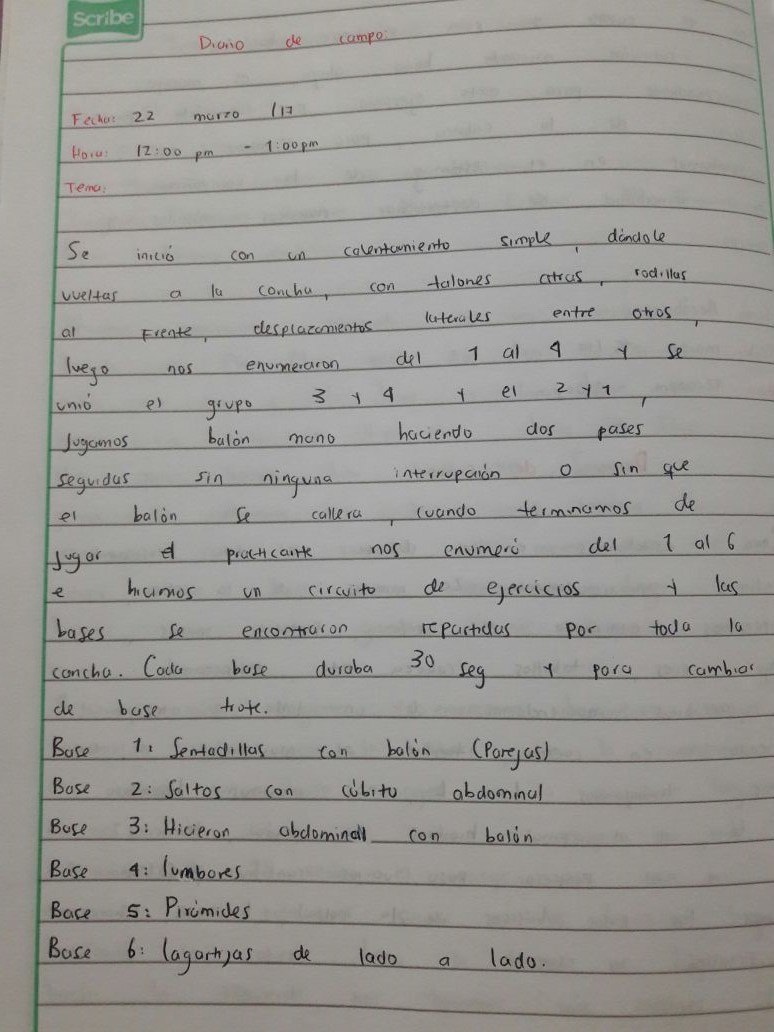 Scribe
Diario de campo
Fecha: 22 marzo /17
Hora: 12:00 pm - 1:00pm
Tema:
Se inició con un calentamiento simple, dándole
vueltas a la concha, con talones atras, rodillas
al frente, desplazamientos laterales entre otros,
luego nos enumeraron del 1 al 4 y se
unió el grupo 3 y 4 y el 2 y 1,
Jugamos balón mano haciendo dos pases
seguidas sin ninguna interrupción o sin que
el balón se callera, cuando terminamos de
jugar el practicante nos enumeró del 1 al 6
e hicimos un circuito de ejercicios y las
bases se encontraron repartidas por toda la
concha. Cada base duraba 30 seg y para cambiar
de base trote.
Base 1: Sentadillas con balón (Parejas)
Base 2: Saltos con cúbito abdominal
Base 3: Hicieron abdominall con balón
Base 4: lumbores
Base 5: Pirámides
Base 6: lagartijas de lado a lado.